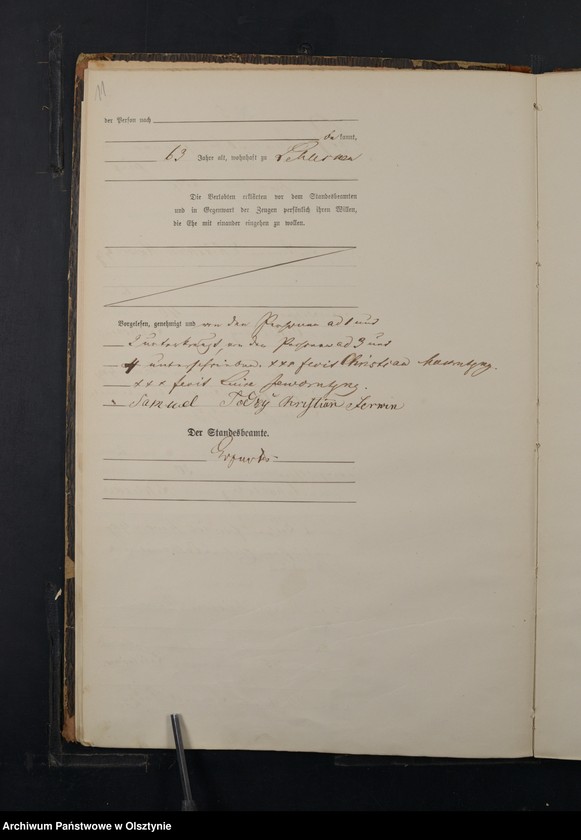 11
der Person nach
da kannt,
63 Jahre alt, wohnhaft zu
Die Verlobten erklärten vor dem Standesbeamten
und in Gegenwart der Zeugen persönlich ihren Willen,
die Ehe mit einander eingehen zu wollen.
Vorgelesen, genehmigt und von den Personen ad 1 und
2 unterkreuzt, von den Personen ad 3 und
4 unterschrieben. +++ fecit Christian
+++ fecit
Samuel Christian
Der Standesbeamte.
Archiwum Państwowe w Olsztynie